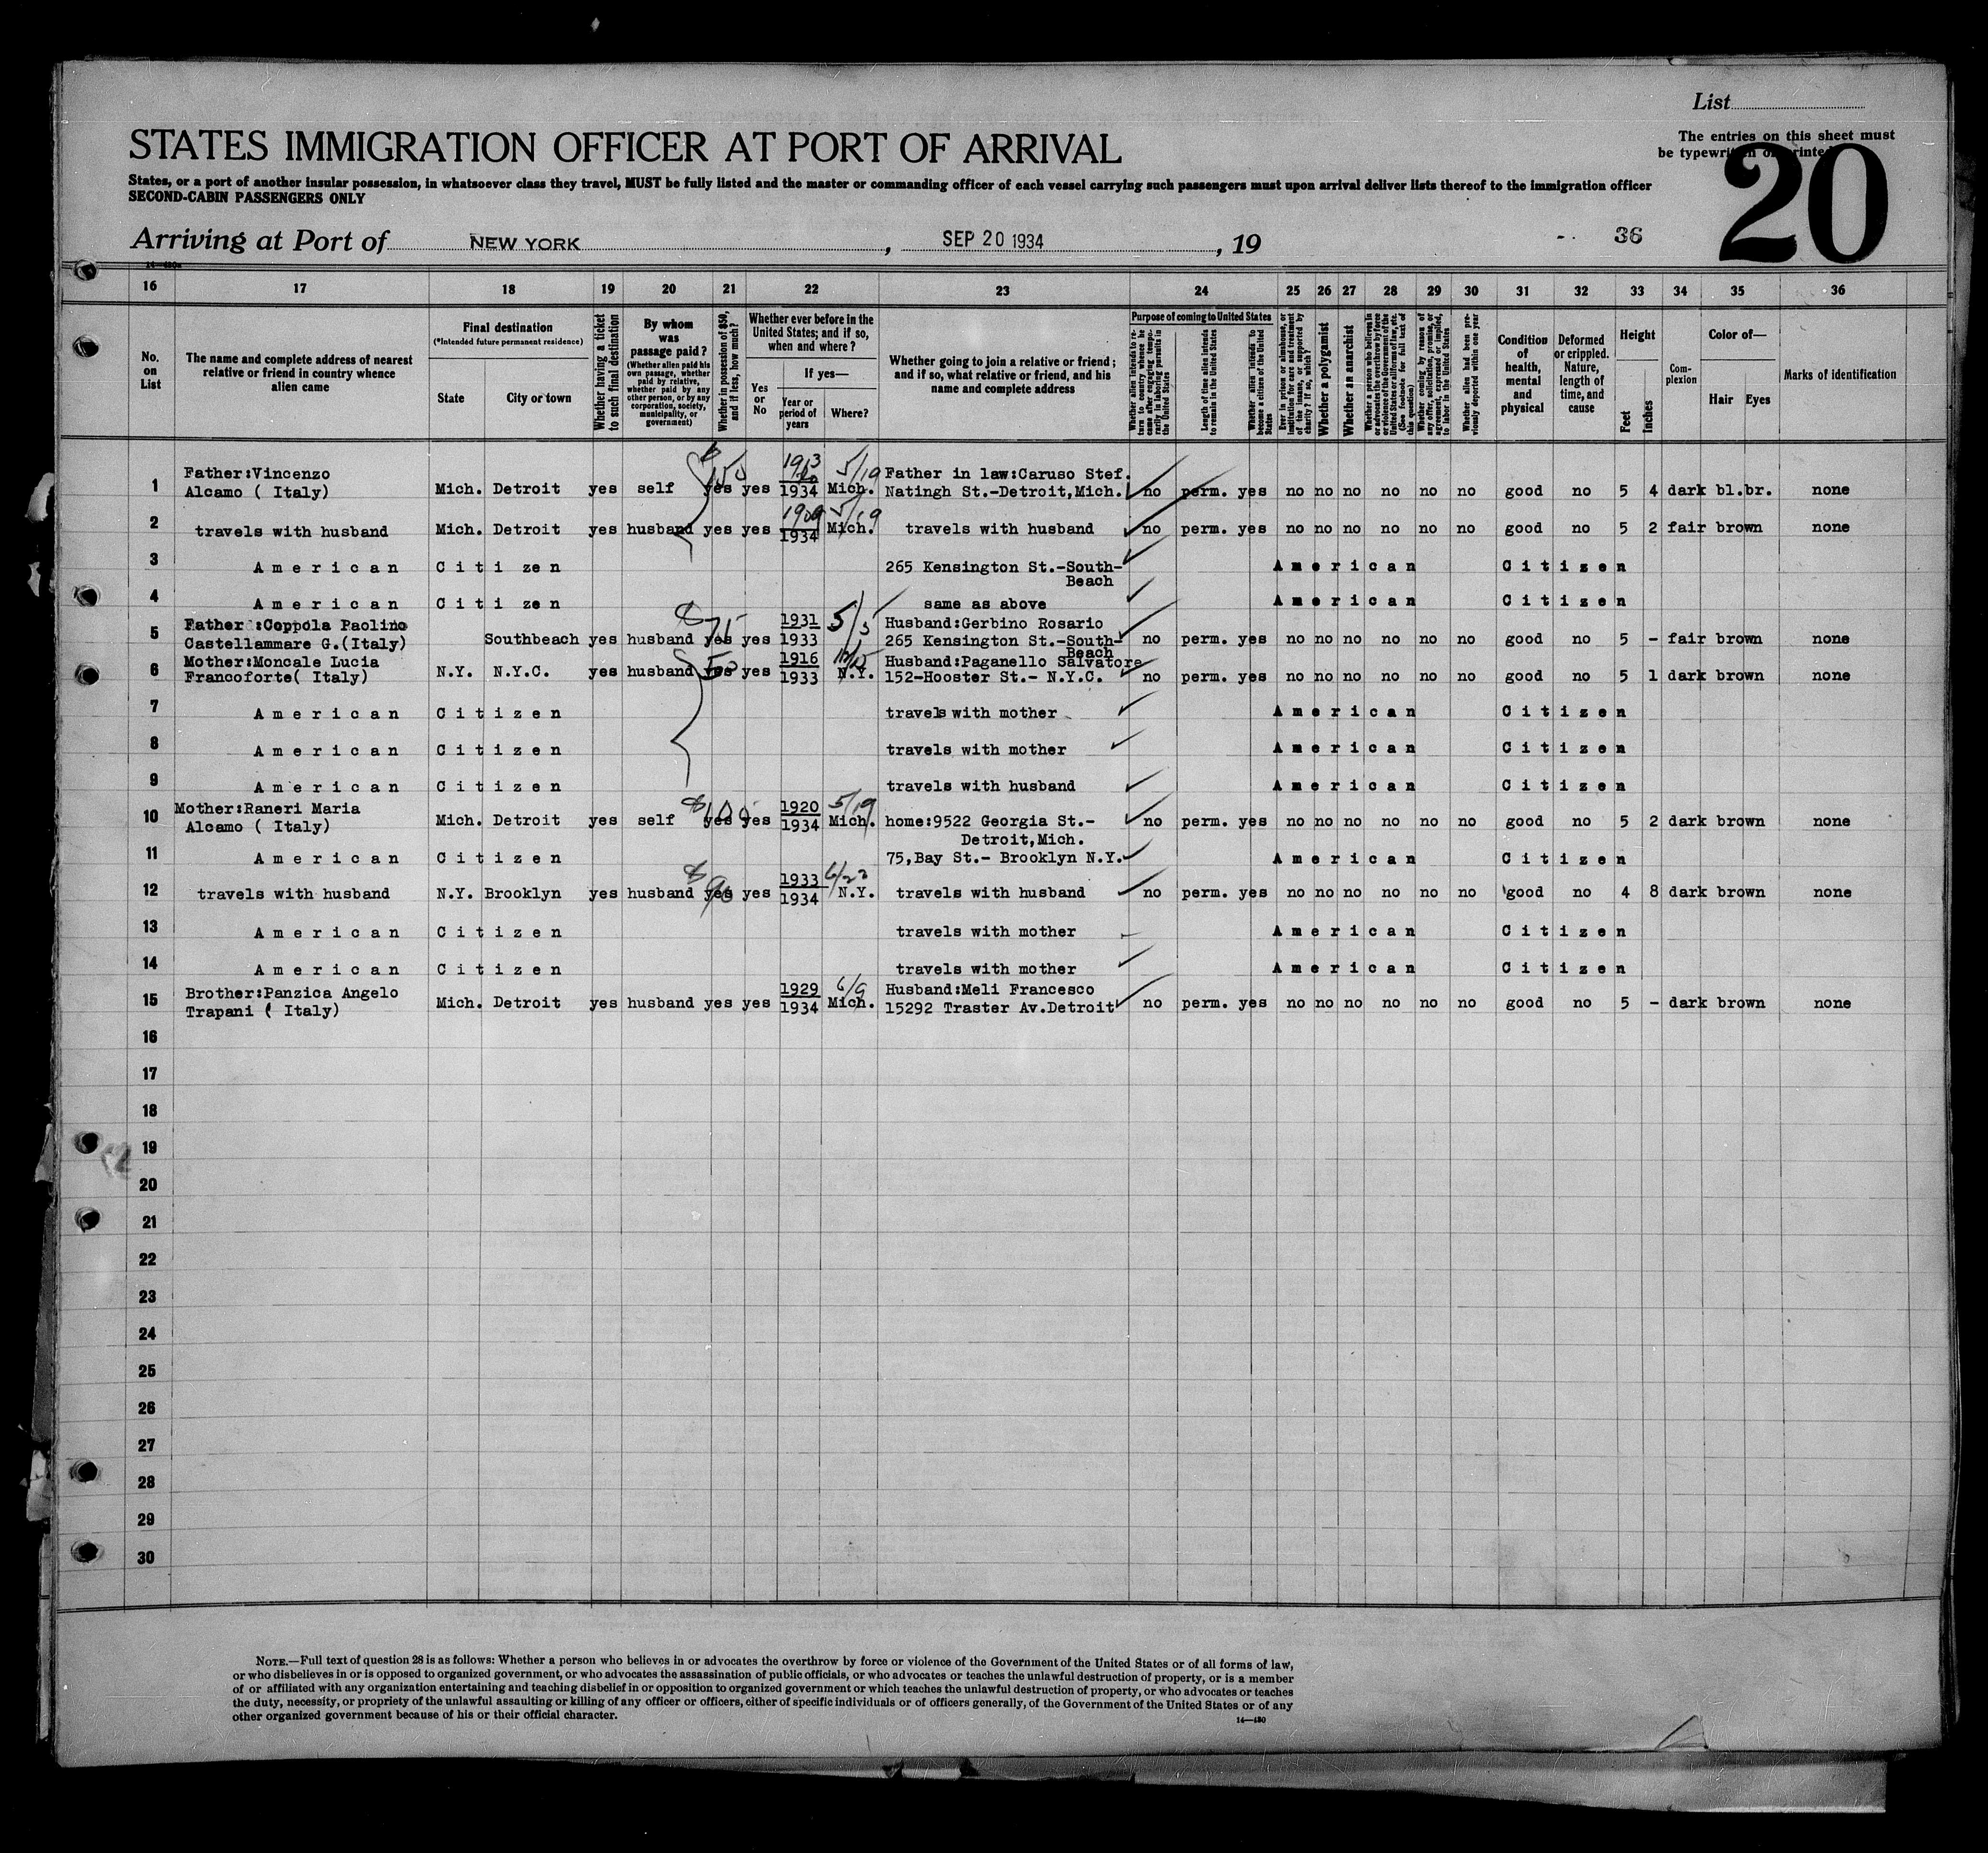 List
The entries on this sheet must
be typewritten or printed
20
STATES IMMIGRATION OFFICER AT PORT OF ARRIVAL
States, or a port of another insular possession, in whatsoever class they travel, MUST be fully listed and the master or commanding officer of each vessel carrying such passengers must upon arrival deliver lists thereof to the immigration officer
SECOND-CABIN PASSENGERS ONLY
Arriving at Port of NEW YORK, SEP 20 1934, 19
36
16 17 18 19 20 21 22 23 24 25 26 27 28 29 30 31 32 33 34 35 36
No. on List
The name and complete address of nearest relative or friend in country whence alien came
Final destination
(*Intended future permanent residence)
State
City or town
Whether having a ticket to such final destination
By whom was passage paid?
(Whether alien paid his own passage, whether paid by relative, whether paid by any other person, or by any corporation, society, municipality, or government)
Whether in possession of $50, and if less, how much?
Whether ever before in the United States; and if so, when and where?
Yes or No
If yes—
Year or period of years
Where?
Whether going to join a relative or friend; and if so, what relative or friend, and his name and complete address
Purpose of coming to United States
Whether alien intends to return to country whence he came after engaging temporarily in laboring pursuits in the United States
Length of time alien intends to remain in the United States
Whether alien intends to become a citizen of the United States
Ever in prison or almshouse, or institution for care and treatment of the insane, or supported by charity? If so, which?
Whether a polygamist
Whether an anarchist
Whether a person who believes in or advocates the overthrow by force or violence of the Government of the United States or all forms of law, etc. (See footnote for full text of this question)
Whether coming by reason of any offer, solicitation, promise, or agreement, expressed or implied, to labor in the United States
Whether alien had been previously deported within one year
Condition of health, mental and physical
Deformed or crippled. Nature, length of time, and cause
Height
Feet
Inches
Complexion
Color of—
Hair
Eyes
Marks of identification
1 Father:Vincenzo 1913 5/19 Father in law:Caruso Stef.
Alcamo ( Italy) Mich. Detroit yes self yes yes 1934 Mich. Natingh St.-Detroit,Mich. no perm. yes no no no no no no good no 5 4 dark bl.br. none
150
2 travels with husband Mich. Detroit yes husband yes yes 1909 1934 5/19 Mich. travels with husband no perm. yes no no no no no no good no 5 2 fair brown none
3 American Citi zen 265 Kensington St.-South- American Citizen
Beach
4 American Citi zen same as above American Citizen
5 Father :Coppola Paolino $75 1931 5/5 Husband:Gerbino Rosario
Castellammare G.(Italy) Southbeach yes husband yes yes 1933 265 Kensington St.-South- no perm. yes no no no no no no good no 5 - fair brown none
Beach
6 Mother:Moncale Lucia 50 1916 Husband:Paganello Salvatore
Francoforte( Italy) N.Y. N.Y.C. yes husband yes yes 1933 N.Y. 152-Hooster St.- N.Y.C. no perm. yes no no no no no no good no 5 1 dark brown none
7 American Citizen travels with mother American Citizen
8 American Citizen travels with mother American Citizen
9 American Citizen travels with husband American Citizen
10 Mother:Raneri Maria $100 1920 5/19
Alcamo ( Italy) Mich. Detroit yes self yes yes 1934 Mich. home:9522 Georgia St.- no perm. yes no no no no no no good no 5 2 dark brown none
Detroit,Mich.
11 American Citizen 75,Bay St.- Brooklyn N.Y. American Citizen
12 travels with husband N.Y. Brooklyn yes husband $90 yes yes 1933 1934 6/22 N.Y. travels with husband no perm. yes no no no no no no good no 4 8 dark brown none
13 American Citizen travels with mother American Citizen
14 American Citizen travels with mother American Citizen
15 Brother:Panzica Angelo 1929 6/9 Husband:Meli Francesco
Trapani ( Italy) Mich. Detroit yes husband yes yes 1934 Mich. 15292 Traster Av.Detroit no perm. yes no no no no no no good no 5 - dark brown none
16
17
18
19
20
21
22
23
24
25
26
27
28
29
30
NOTE.—Full text of question 28 is as follows: Whether a person who believes in or advocates the overthrow by force or violence of the Government of the United States or of all forms of law,
or who disbelieves in or is opposed to organized government, or who advocates the assassination of public officials, or who advocates or teaches the unlawful destruction of property, or is a member
of or affiliated with any organization entertaining and teaching disbelief in or opposition to organized government or which teaches the unlawful destruction of property, or who advocates or teaches
the duty, necessity, or propriety of the unlawful assaulting or killing of any officer or officers, either of specific individuals or of officers generally, of the Government of the United States or of any
other organized government because of his or their official character.
14—480